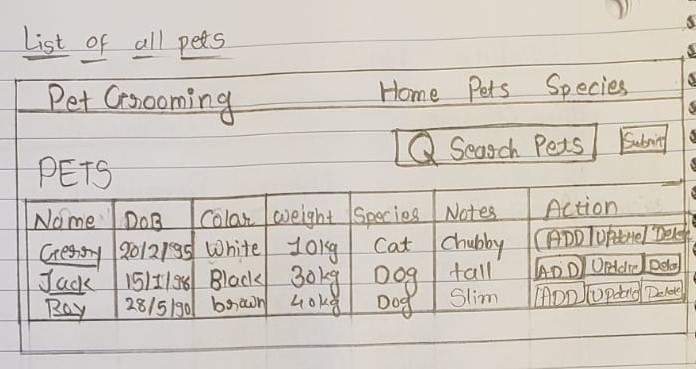 List of all pets
Pet Grooming Home Pets Species
Search Pets Submit
PETS
Name DoB Colar weight Species Notes Action
Gerry 20/2/95 White 10kg Cat Chubby ADD Update Delete
Jack 15/1/98 Black 30kg Dog tall ADD Update Delete
Boy 28/5/90 brown 40kg Dog Slim ADD Update Delete